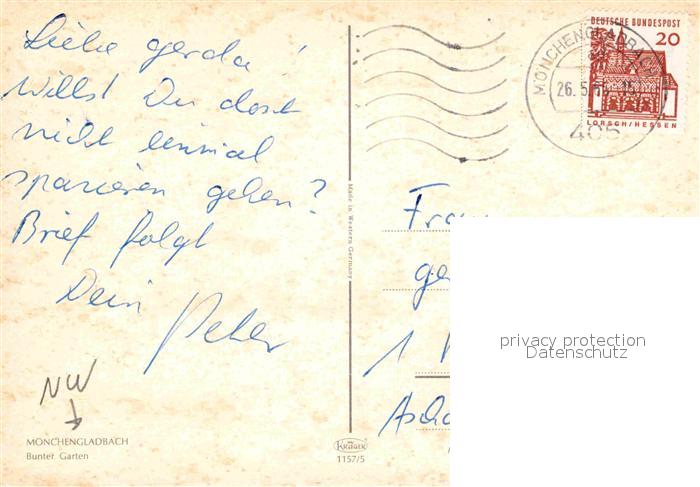 Liebe Gerda!
Willst Du dort
nicht einmal
spazieren gehen?
Brief folgt
Dein Peter
NW
MÖNCHENGLADBACH
Bunter Garten
Made in Western Germany
KRÜGER
1157/5
MÖNCHENGLADBACH
26.5.
405
DEUTSCHE BUNDESPOST
20
LORSCH/HESSEN
Frau
Ge
1
Asch
privacy protection
Datenschutz